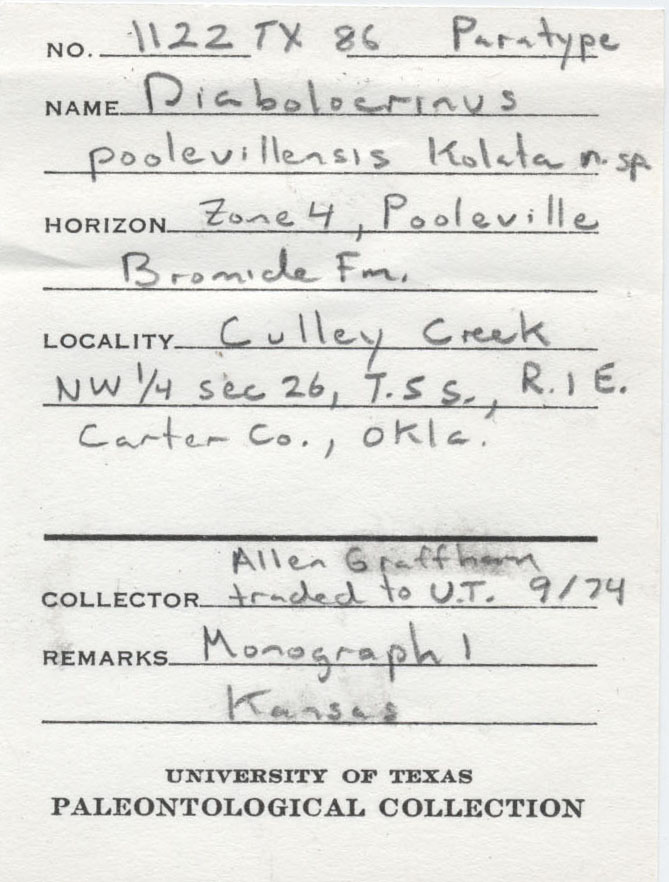 NO. 1122 TX 86 Paratype
NAME Diabolocrinus
poolevillensis Kolata n. sp
HORIZON Zone 4, Pooleville
Bromide Fm.
LOCALITY Culley Creek
NW 1/4 sec 26, T. 5 S., R. 1 E.
Carter Co., Okla.
Allen Graffham
COLLECTOR traded to U.T. 9/74
REMARKS Monograph 1
Kansas
UNIVERSITY OF TEXAS
PALEONTOLOGICAL COLLECTION